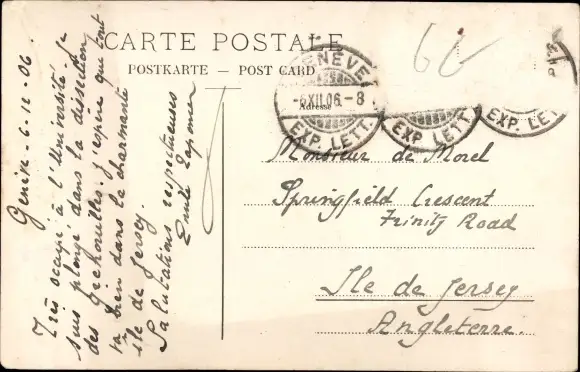 CARTE POSTALE
POSTKARTE — POST CARD
Adresse
GENÈVE
-6.XII.06.-8
EXP. LETT.
EXP. LETT.
EXP. LET
Genève - 6-12-06.
Très occupé à l'Université. Je
suis plongé dans la dissection
des grenouilles. J'espère que tout
va bien dans la charmante
île de Jersey.
Salutations respectueuses
Emile
Monsieur de Morel
Springfield Crescent
Trinity Road
Ile de Jersey
Angleterre.